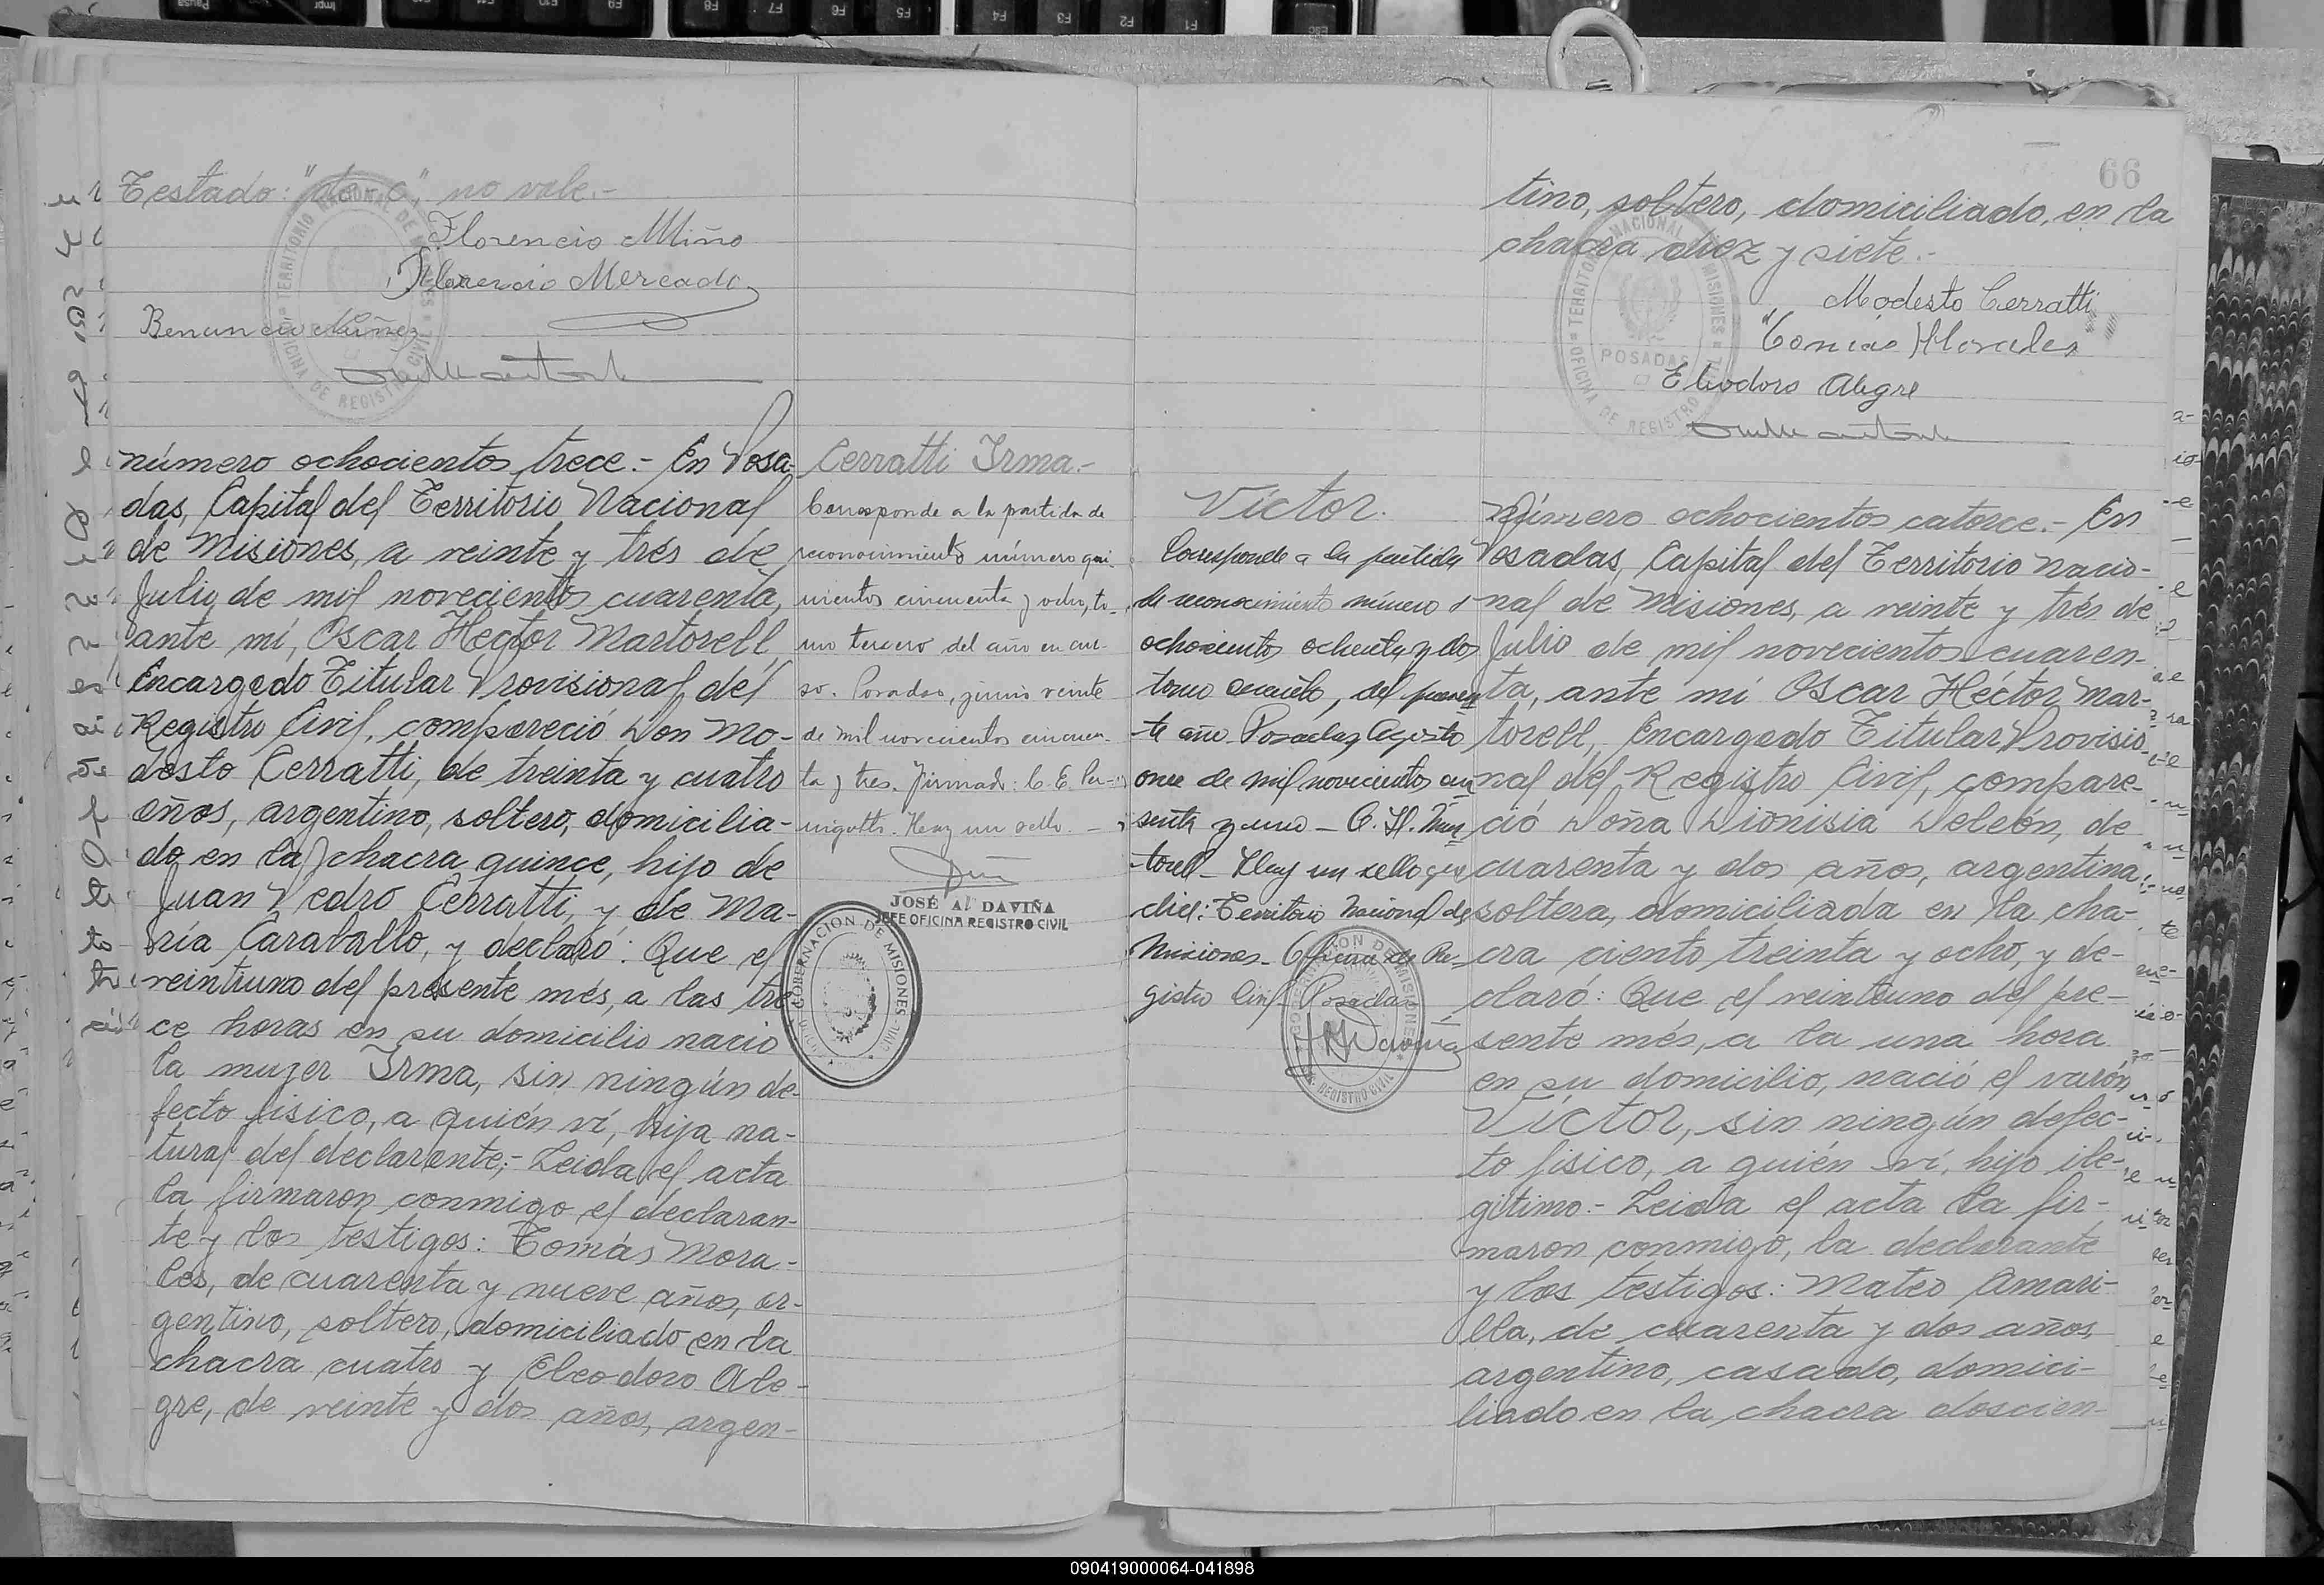 Testado: "do c", no vale.-
Florencio Miño
Florencio Mercado
Benancio Nuñez
TERRITORIO NACIONAL DE MISIONES
OFICINA DE REGISTRO CIVIL
número ochocientos trece.- En Posa-
das, Capital del Territorio Nacional
de Misiones, a veinte y trés de
Julio de mil novecientos cuarenta,
ante mí, Oscar Hector Martorell,
Encargado Titular Provisional del
Registro Civil, compareció Don Mo-
desto Cerratti, de treinta y cuatro
años, argentino, soltero, domicilia-
do en la chacra quince, hijo de
Juan Pedro Cerratti, y de Ma-
ría Caraballo, y declaró: Que el
veintiuno del presente més, a las tre
ce horas en su domicilio nació
la mujer Irma, sin ningún de-
fecto físico, a quién ví, hija na-
tural del declarante;- Leida el acta
la firmaron conmigo el declaran-
te y los testigos: Tomás Mora-
les, de cuarenta y nueve años, ar-
gentino, soltero, domiciliado en la
chacra cuatro y Eleodoro Ale-
gre, de veinte y dos años, argen-
Cerratti Irma.-
Corresponde a la partida de
reconocimiento número qui-
nientos cincuenta y ocho, to-
mo tercero del año en cur-
so. Posadas, junio veinte
de mil novecientos cincuen-
ta y tres. Firmado: C. E.
Hay un sello.-
JOSÉ A. DAVIÑA
JEFE OFICINA REGISTRO CIVIL
GOBERNACION DE MISIONES
66
tino, soltero, domiciliado, en la
chacra diez y siete.-
Modesto Cerratti
Tomás Morales
Eleodoro Alegre
TERRITORIO NACIONAL DE MISIONES
POSADAS
OFICINA DE REGISTRO CIVIL
Víctor.
Corresponde a la partida
de reconocimiento número
ochocientos ochenta y dos
tomo cuarto, del presen
-te año. Posadas Agosto
once de mil novecientos cin
-senta y uno - O. H. Mar
-torell - Hay un sello que
dice: Territorio Nacional de
Misiones - Oficina de Re-
gistro Civil - Posadas
GOBERNACION DE MISIONES
REGISTRO CIVIL
Número ochocientos catorce.- En
Posadas, Capital del Territorio Nacio-
nal de Misiones, a veinte y trés de
Julio de mil novecientos cuaren-
ta, ante mí Oscar Héctor Mar-
torell, Encargado Titular Provisio
nal del Registro Civil, compare-
ció Doña Dionisia Deleón, de
cuarenta y dos años, argentina,
soltera, domiciliada en la cha-
cra ciento treinta y ocho, y de-
claró: Que el veintiuno del pre-
sente més, a la una hora
en su domicilio, nació el varón
Víctor, sin ningún defec-
to físico, a quién ví, hijo ile-
gítimo.- Leida el acta la fir-
maron conmigo, la declarante
y los testigos: Mateo Amari-
lla, de cuarenta y dos años,
argentino, casado, domici-
liado en la chacra doscien-
090419000064-041898